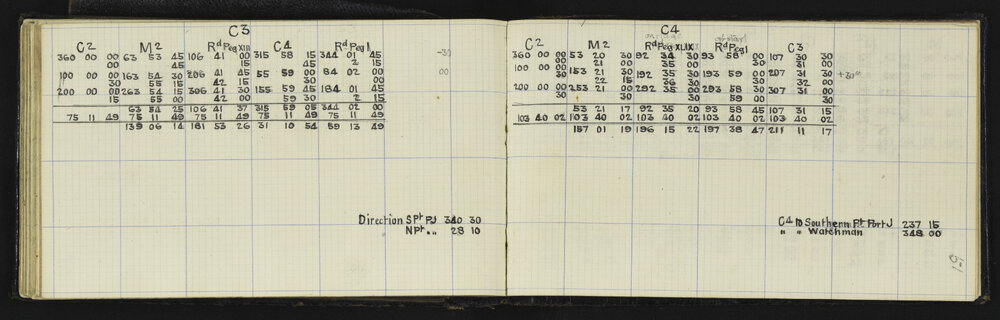 C3
C2 M2 Rd Peg XIII C4 Rd Peg I
360 00 00 63 53 45 106 41 00 315 58 15 344 01 45
00 45 15 45 2 15
100 00 00 163 54 30 206 41 45 55 59 00 84 02 00
30 55 15 42 15 30
200 00 00 263 54 15 306 41 30 155 59 45 184 01 45
15 55 00 42 00 59 30 2 15
63 54 25 106 41 37 315 59 05 344 02 00
75 11 49 75 11 49 75 11 49 75 11 49 75 11 49
139 06 14 181 53 26 31 10 54 59 13 49
-30
00
Direction S Pt PJ 340 30
N Pt " " 28 10
C4
C2 M2 Rd Peg XLIX Rd Peg I C3
360 00 00 53 20 30 92 34 30 93 58 00 107 30 30
00 21 00 35 00 30 31 00
100 00 00 153 21 30 192 35 30 193 59 00 207 31 30
30 22 15 36 30 30 32 00
200 00 00 253 21 00 292 35 00 293 58 30 307 31 00
30 30 30 59 00 30
53 21 17 92 35 20 93 58 45 107 31 15
103 40 02 103 40 02 103 40 02 103 40 02 103 40 02
157 01 19 196 15 22 197 38 47 211 11 17
+30"
C4 to Southern Pt Port J 237 15
" " Watchman 348 00